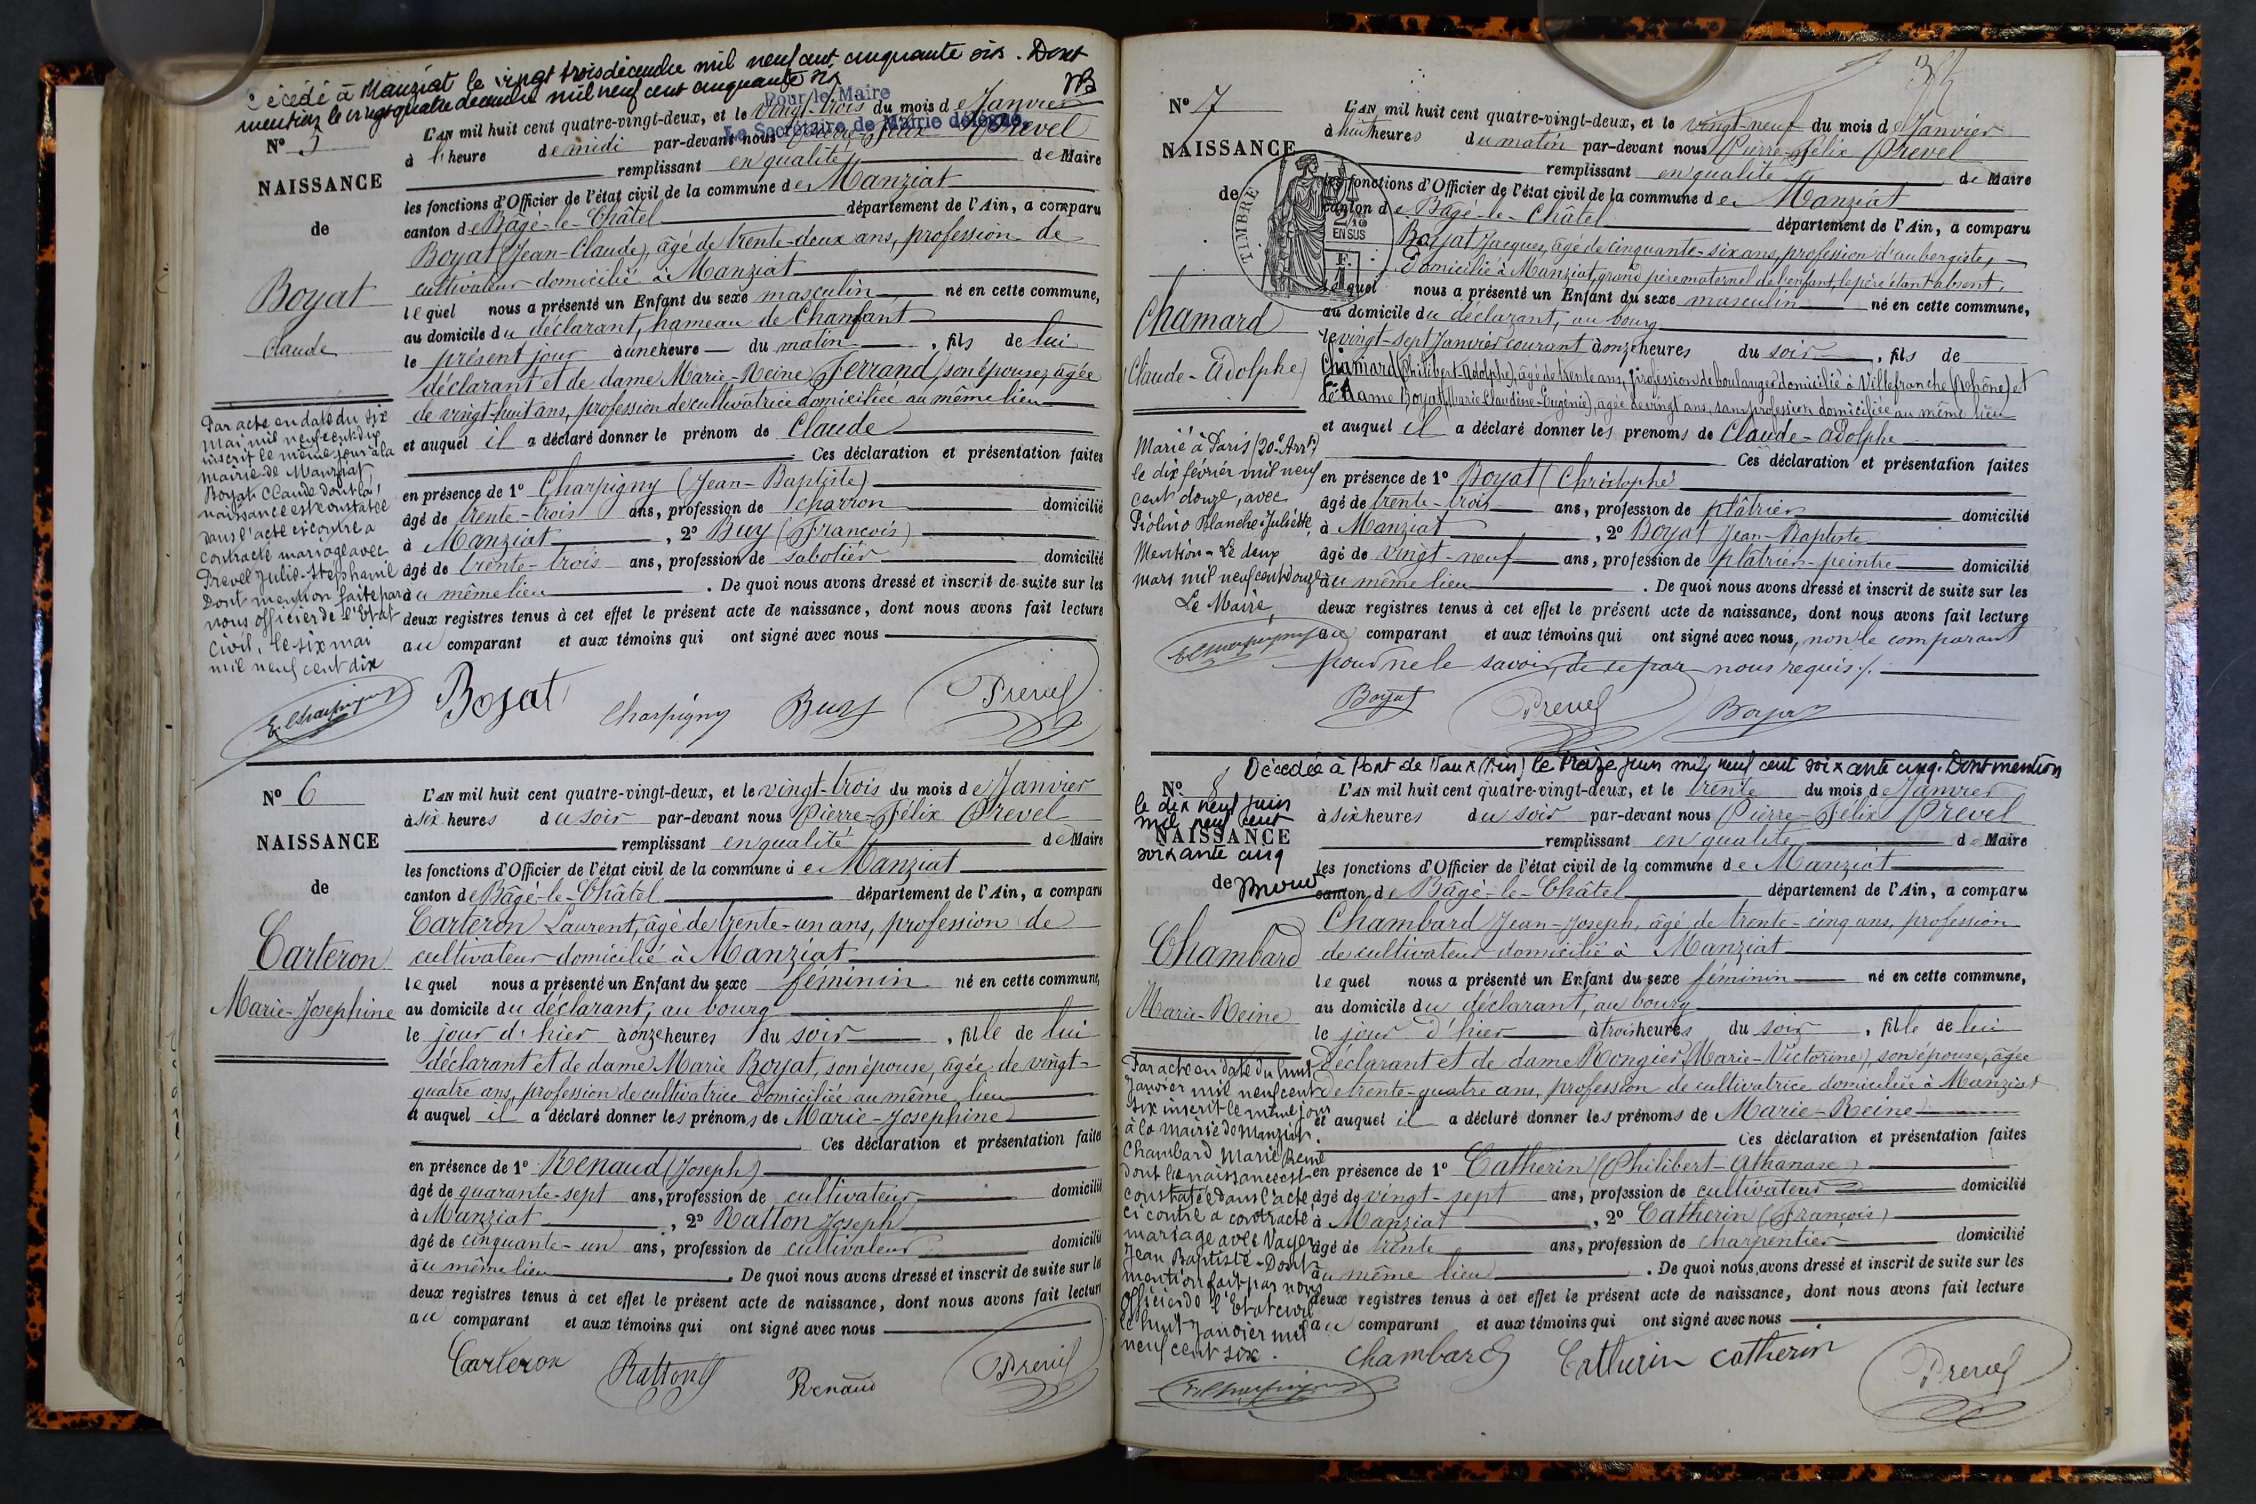 Décédé à Manziat le vingt trois décembre mil neuf cent cinquante six. Dont
mention le vingt quatre décembre mil neuf cent cinquante six
Pour le Maire
Le Secrétaire de Mairie délégué,
N° 5
NAISSANCE
de
Boyat
Claude
L'AN mil huit cent quatre-vingt-deux, et le vingt-trois du mois de Janvier
à 1 heure de midi par-devant nous Pierre-Félix Prevel
remplissant en qualité de Maire
les fonctions d'Officier de l'état civil de la commune de Manziat
canton de Bâgé-le-Châtel département de l'Ain, a comparu
Boyat (Jean-Claude), âgé de trente-deux ans, profession de
cultivateur domicilié à Manziat
lequel nous a présenté un Enfant du sexe masculin né en cette commune,
au domicile du déclarant, hameau de Chanfant
le présent jour à une heure du matin, fils de lui
déclarant et de dame Marie-Reine Ferrand, son épouse, âgée
de vingt-huit ans, profession de cultivatrice domiciliée au même lieu
et auquel il a déclaré donner le prénom de Claude
Ces déclaration et présentation faites
en présence de 1° Charpigny (Jean-Baptiste)
âgé de trente-trois ans, profession de charron domicilié
à Manziat, 2° Buy (François)
âgé de trente-trois ans, profession de sabotier domicilié
au même lieu. De quoi nous avons dressé et inscrit de suite sur les
deux registres tenus à cet effet le présent acte de naissance, dont nous avons fait lecture
au comparant et aux témoins qui ont signé avec nous
Par acte en date du six
mai mil neuf cent dix
inscrit le même jour à la
mairie de Manziat,
Boyat Claude dont la
naissance est constatée
dans l'acte ci contre a
contracté mariage avec
Prevel Julie-Stéphanie
Dont mention faite par
nous officier de l'Etat
civil, le six mai
mil neuf cent dix
E. Charpigny
Boyat Charpigny Buy Prevel
N° 6
NAISSANCE
de
Carteron
Marie-Josephine
L'AN mil huit cent quatre-vingt-deux, et le vingt-trois du mois de Janvier
à six heures du soir par-devant nous Pierre-Félix Prevel
remplissant en qualité de Maire
les fonctions d'Officier de l'état civil de la commune de Manziat
canton de Bâgé-le-Châtel département de l'Ain, a comparu
Carteron Laurent, âgé de trente-un ans, profession de
cultivateur domicilié à Manziat
lequel nous a présenté un Enfant du sexe féminin né en cette commune,
au domicile du déclarant, au bourg
le jour d'hier à onze heures du soir, fille de lui
déclarant et de dame Marie Boyat, son épouse, âgée de vingt-
quatre ans, profession de cultivatrice domiciliée au même lieu
et auquel il a déclaré donner les prénoms de Marie-Josephine
Ces déclaration et présentation faites
en présence de 1° Renaud (Joseph)
âgé de quarante-sept ans, profession de cultivateur domicilié
à Manziat, 2° Ratton Joseph
âgé de cinquante-un ans, profession de cultivateur domicilié
au même lieu. De quoi nous avons dressé et inscrit de suite sur les
deux registres tenus à cet effet le présent acte de naissance, dont nous avons fait lecture
au comparant et aux témoins qui ont signé avec nous
Carteron Ratton Renaud Prevel
N° 7
NAISSANCE
de
TIMBRE
2/10
EN SUS
Chamard
Claude-Adolphe
L'AN mil huit cent quatre-vingt-deux, et le vingt-neuf du mois de Janvier
à huit heures du matin par-devant nous Pierre-Félix Prevel
remplissant en qualité de Maire
les fonctions d'Officier de l'état civil de la commune de Manziat
canton de Bâgé-le-Châtel département de l'Ain, a comparu
Boyat Jacques, âgé de cinquante-six ans, profession d'aubergiste,
domicilié à Manziat, grand père maternel de l'enfant, le père étant absent,
lequel nous a présenté un Enfant du sexe masculin né en cette commune,
au domicile du déclarant, au bourg
le vingt-sept Janvier courant à onze heures du soir, fils de
Chamard (Philibert-Adolphe), âgé de trente ans, profession de boulanger domicilié à Villefranche (Rhône) et
de dame Boyat (Marie Claudine-Eugénie), âgée de vingt ans, sans profession domiciliée au même lieu
et auquel il a déclaré donner les prenoms de Claude-Adolphe
Ces déclaration et présentation faites
en présence de 1° Boyat (Christophe
âgé de trente-trois ans, profession de plâtrier domicilié
à Manziat, 2° Boyat Jean-Baptiste
âgé de vingt-neuf ans, profession de plâtrier-peintre domicilié
au même lieu. De quoi nous avons dressé et inscrit de suite sur les
deux registres tenus à cet effet le présent acte de naissance, dont nous avons fait lecture
au comparant et aux témoins qui ont signé avec nous, non le comparant
pour ne le savoir, de ce par nous requis ./.
Marié à Paris (20e Arrt)
le dix février mil neuf
cent douze, avec
Piolino Blanche Juliette.
Mention - Le deux
mars mil neuf cent douze
Le Maire,
E. Charpigny
Boyat Prevel Boyat
Décédée à Pont de Vaux (Ain) le treize juin mil neuf cent soixante cinq. Dont mention
le dix neuf juin
mil neuf cent
soixante cinq
N° 8
NAISSANCE
de
Chambard
Marie-Reine
L'AN mil huit cent quatre-vingt-deux, et le trente du mois de Janvier
à six heures du soir par-devant nous Pierre-Félix Prevel
remplissant en qualité de Maire
les fonctions d'Officier de l'état civil de la commune de Manziat
canton de Bâgé-le-Châtel département de l'Ain, a comparu
Chambard Jean-Joseph, âgé de trente-cinq ans, profession
de cultivateur domicilié à Manziat
lequel nous a présenté un Enfant du sexe féminin né en cette commune,
au domicile du déclarant, au bourg
le jour d'hier à trois heures du soir, fille de lui
déclarant et de dame Rongier (Marie-Victorine), son épouse, âgée
de trente-quatre ans, profession de cultivatrice domiciliée à Manziat
et auquel il a déclaré donner les prénoms de Marie-Reine
Ces déclaration et présentation faites
en présence de 1° Catherin (Philibert-Athanase)
âgé de vingt-sept ans, profession de cultivateur domicilié
à Manziat, 2° Catherin (François)
âgé de trente ans, profession de charpentier domicilié
au même lieu. De quoi nous avons dressé et inscrit de suite sur les
deux registres tenus à cet effet le présent acte de naissance, dont nous avons fait lecture
au comparant et aux témoins qui ont signé avec nous
Par acte en date du huit
Janvier mil neuf cent
six inscrit le même jour
à la mairie de Manziat.
Chambard Marie Reine
dont la naissance est
constatée dans l'acte
ci contre a contracté
mariage avec Vayer
Jean Baptiste - Dont
mention fait par nous
officier de l'Etat civil
le huit Janvier mil
neuf cent six.
E. Charpigny
Chambard Catherin Catherin Prevel